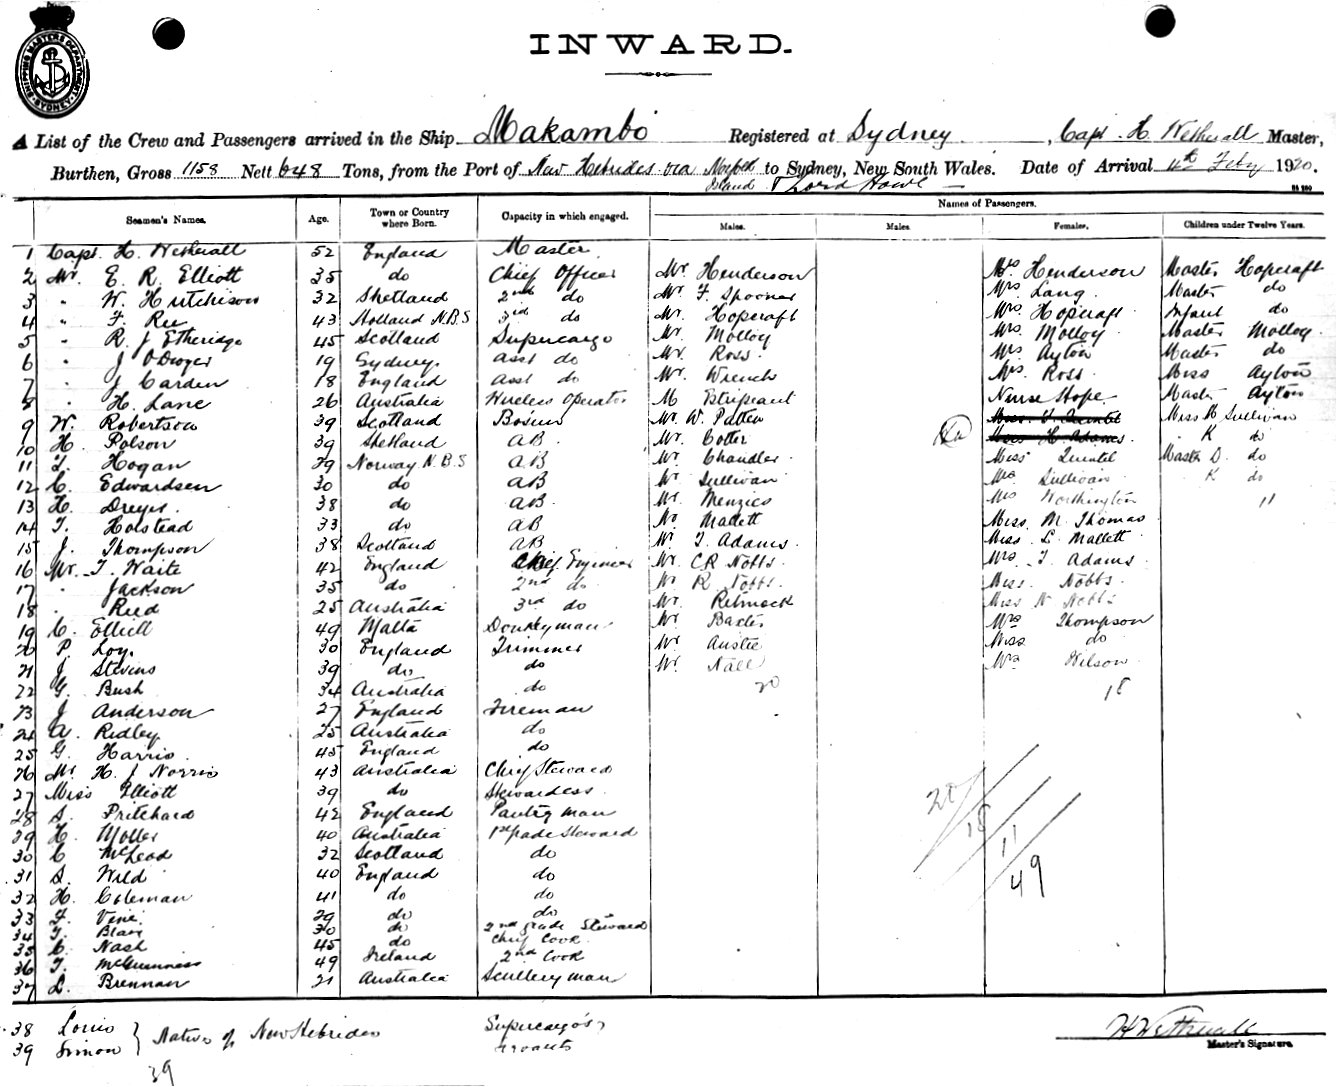 SHIPPING MASTERS DEPARTMENT SYDNEY
INWARD.
A List of the Crew and Passengers arrived in the Ship Makambo Registered at Sydney, Capt. H. Wetherall Master,
Burthen, Gross 1158 Nett 648 Tons, from the Port of New Hebrides via Norfolk Island & Lord Howe to Sydney, New South Wales. Date of Arrival 11th Feby 1920.
Names of Passengers.
Seamen's Names. Age. Town or Country where Born. Capacity in which engaged. Males. Males. Females. Children under Twelve Years.
1 Capt. H. Wetherall 52 England Master
2 Mr. E. R. Elliott 35 do Chief Officer Mr Henderson Mrs Henderson Master Hopcraft
3 " W. Hutchison 32 Shetland 2nd do Mr F. Spooner Mrs Lang Master do
4 " F. Ree 43 Holland N.B.S 3rd do Mr. Hopcraft Mrs. Hopcraft Infant do
5 " R. J. Etheridge 45 Scotland Supercargo Mr Molloy Mrs. Molloy Master Molloy
6 " J. O'Dwyer 19 Sydney asst do Mr. Ross Mrs Ayton Master do
7 " J. Carden 18 England asst do Mr. Wrench Mrs. Ross Miss Ayton
8 " H. Lane 26 Australia Wireless Operator M Nurse Hope Master Ayton
9 W. Robertson 39 Scotland Bosun Mr. W. Patten Miss B Sullivan
10 H. Polson 39 Shetland AB Mr. Cotter Miss H. Adams K do
11 T. Hogan 39 Norway N.B.S AB Mr Chandler Miss Quintal Master D. do
12 C. Edwardsen 30 do AB Mr Sullivan Mrs Sullivan K do
13 H. Dreyer 38 do AB Mr. Menzies Mrs Worthington 11
14 T. Holstead 33 do AB Mr Mallett Miss M. Thomas
15 J. Thompson 38 Scotland AB Mr T. Adams Miss L. Mallett
16 Mr. T. Waite 42 England Chief Engineer Mr. C R Nobbs Mrs. T. Adams
17 " Jackson 35 do 2nd do Mr R Nobbs Miss. Nobbs
18 " Reed 25 Australia 3rd do Mr. Retmock Miss N Nobbs
19 C. Elliott 49 Malta Donkeyman Mr Baxter Mrs Thompson
20 P. Loy. 30 England Trimmer Mr Austic Miss do
21 J. Stevens 39 do do Mr. Nall Mrs Wilson
22 G. Bush 34 Australia do 20 18
23 J. Anderson 27 England Fireman
24 A. Ridley 25 Australia do
25 G. Harris 45 England do
26 Mr. H. J Norris 43 Australia Chief Steward
27 Miss Elliott 39 do Stewardess
28 S. Pritchard 42 England Pantryman
29 H. Moller 40 Australia 1st grade Steward
30 C McLeod 32 Scotland do
31 S. Wild 40 England do
32 H. Coleman 41 do do
33 F. Vine 29 do do
34 T. Blair 30 do 2nd grade Steward
35 C. Nash 45 do Chief Cook
36 T. McGuinness 49 Ireland 2nd Cook
37 L. Brennan 21 Australia Sculleryman
20/18/11/49
38 Louis
39 Simon } Natives of New Hebrides Supercargo's servants
39
H Wetherall
Master's Signature